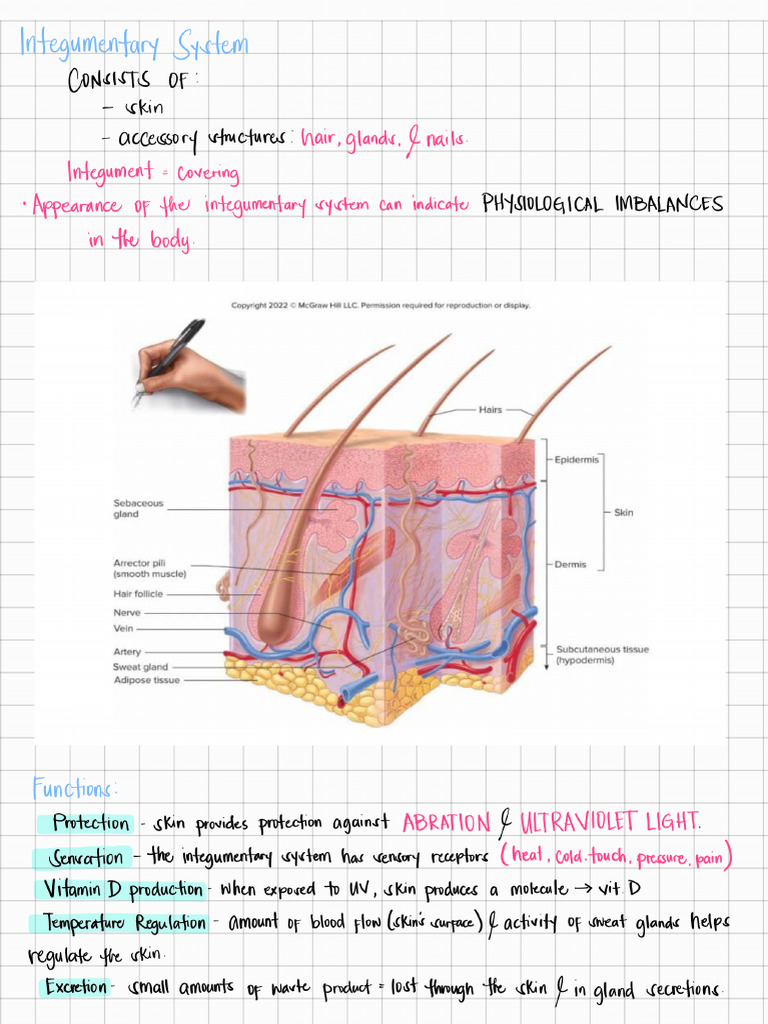 Integumentary System
CONSISTS OF:
- skin
- accessory structures: hair, glands, & nails.
Integument = covering
• Appearance of the integumentary system can indicate PHYSIOLOGICAL IMBALANCES
in the body.
Copyright 2022 © McGraw Hill LLC. Permission required for reproduction or display.
Hairs
Epidermis
Sebaceous
gland
Skin
Arrector pili
(smooth muscle)
Dermis
Hair follicle
Nerve
Vein
Artery
Subcutaneous tissue
(hypodermis)
Sweat gland
Adipose tissue
Functions:
Protection - skin provides protection against ABRATION & ULTRAVIOLET LIGHT.
Sensation - the integumentary system has sensory receptors (heat, cold, touch, pressure, pain)
Vitamin D production - when exposed to UV, skin produces a molecule → vit. D
Temperature Regulation - amount of blood flow (skin's surface) & activity of sweat glands helps
regulate the skin.
Excretion - small amounts of waste product = lost through the skin & in gland secretions.